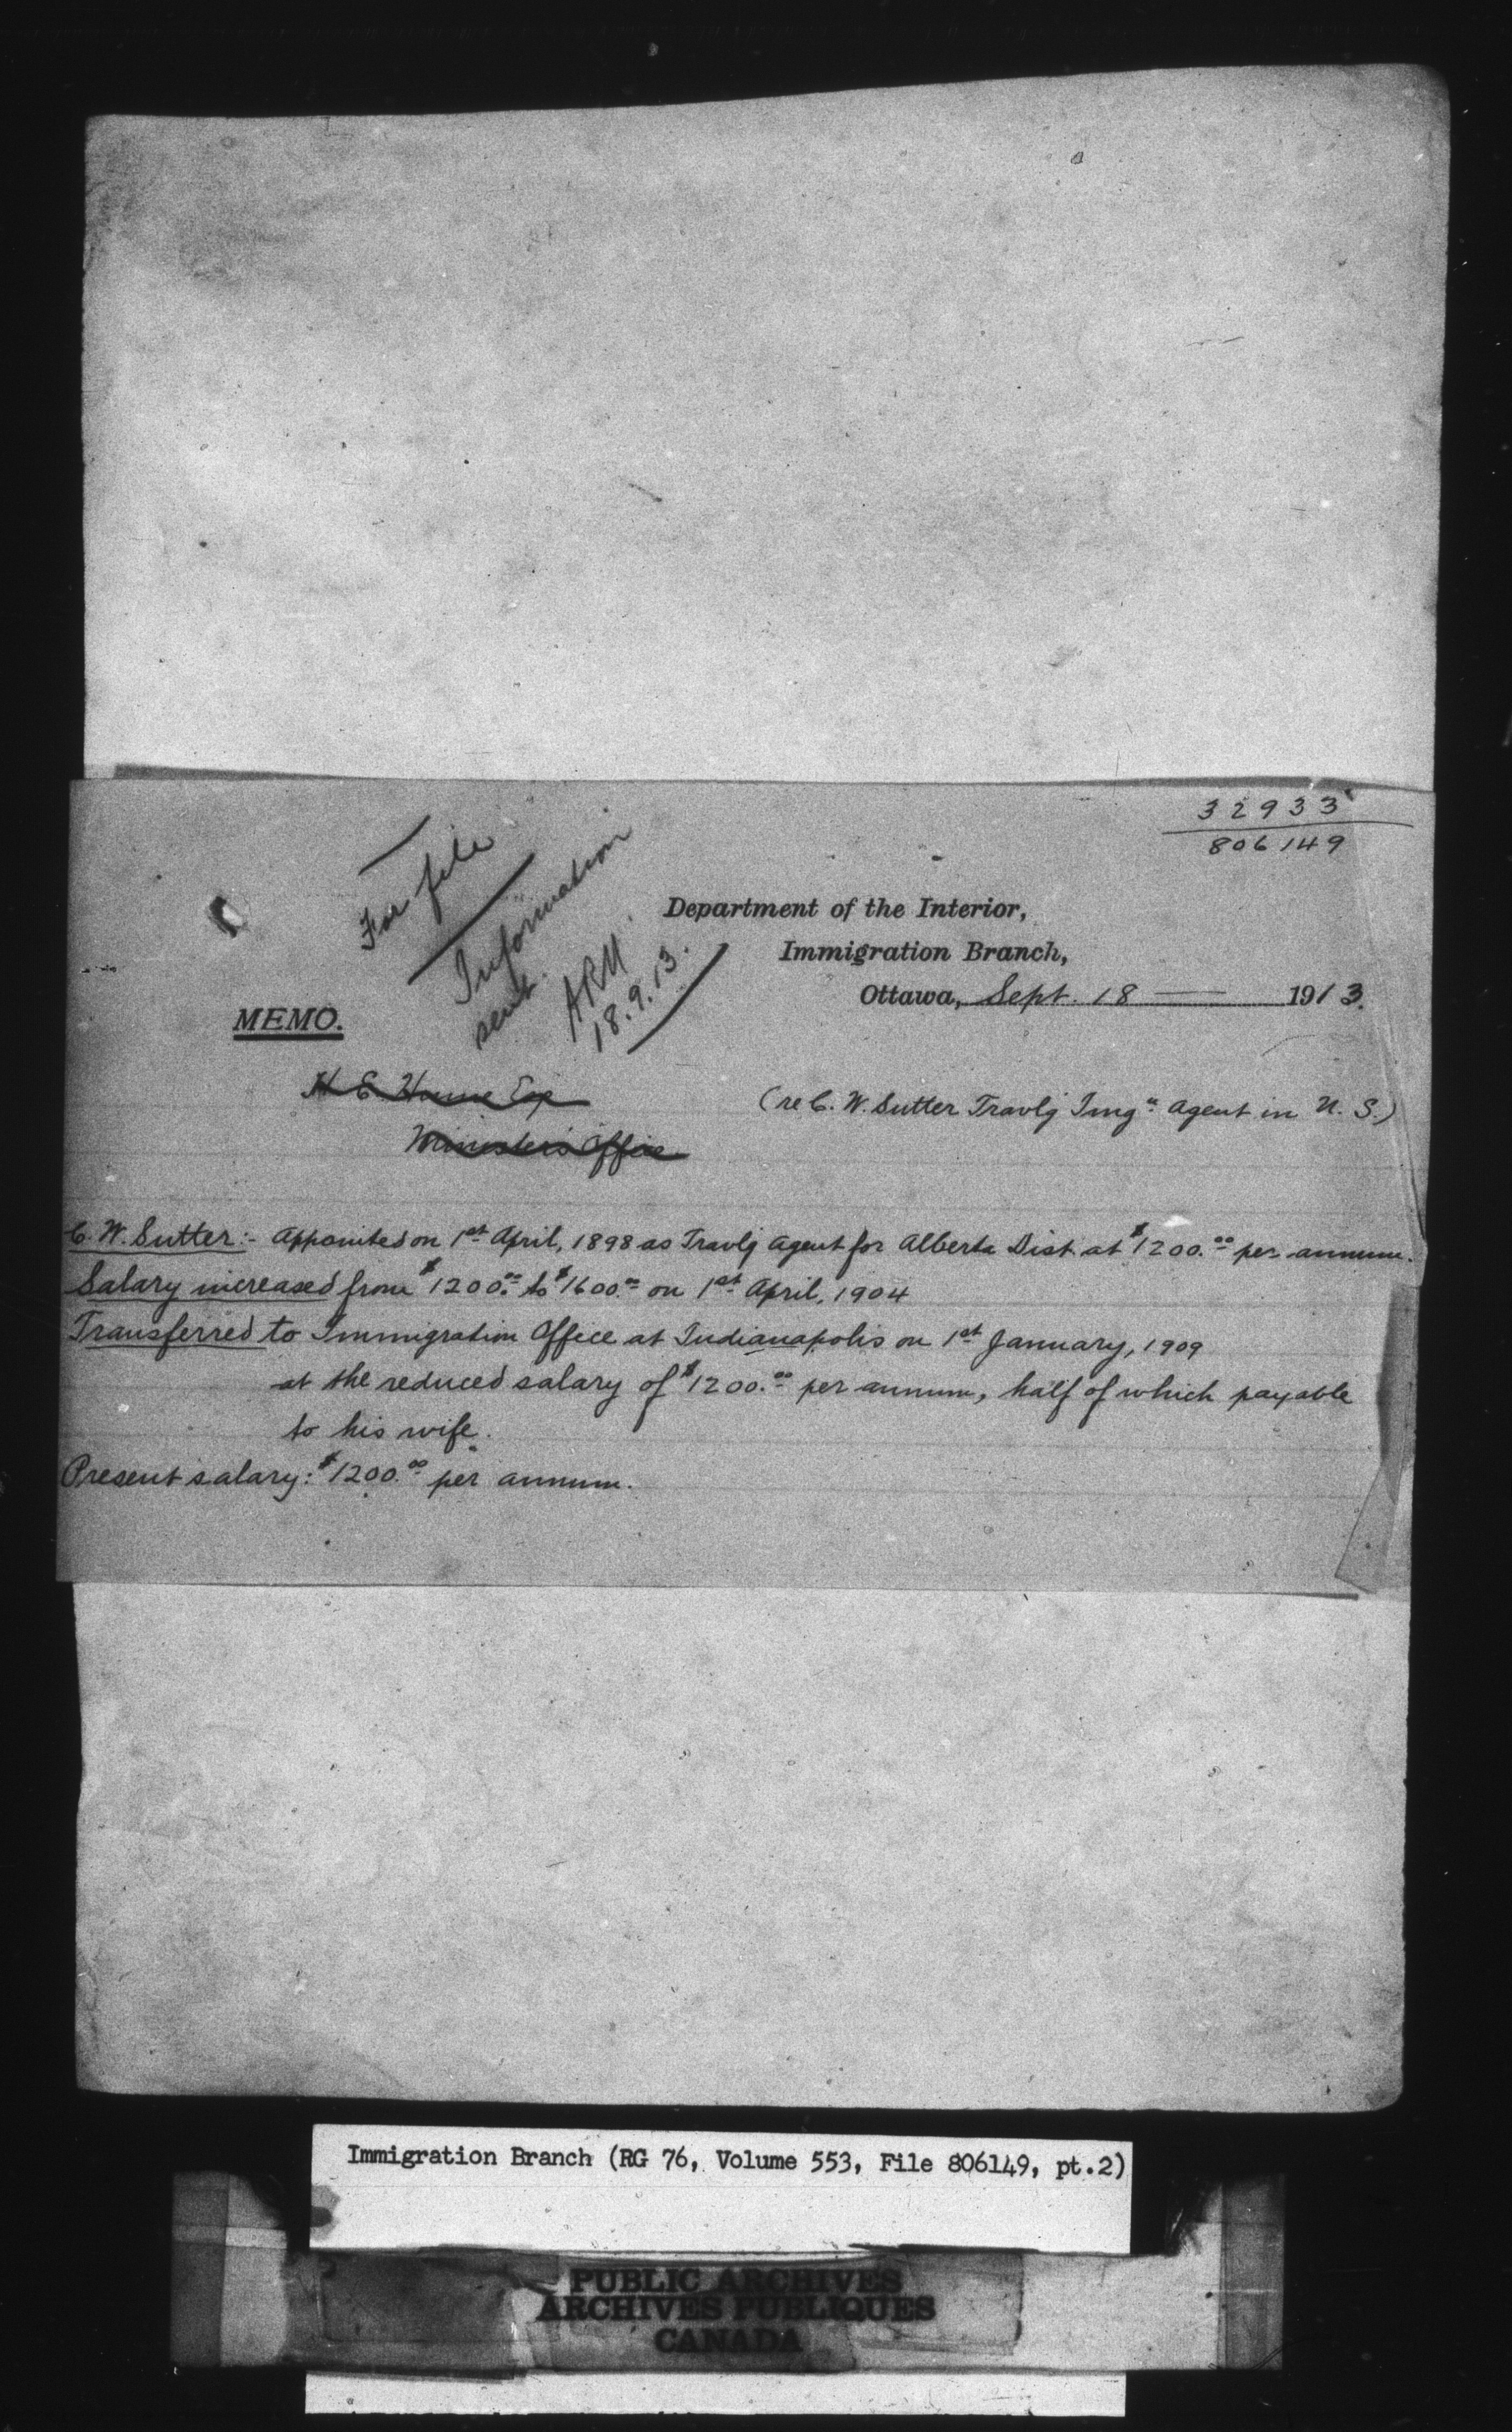 32933
806149
For file
Information
sent.
ARM
18.9.13.
Department of the Interior,
Immigration Branch,
Ottawa, Sept. 18 — 1913.
MEMO.
H E Hume Esq
Minister's Office
(re C. W. Sutter Travlg Immgn Agent in U. S.)
C. W. Sutter:- Appointed on 1st April, 1898 as Travlg Agent for Alberta Dist. at $1200.00 per annum.
Salary increased from $1200.00 to $1600.00 on 1st April, 1904
Transferred to Immigration Office at Indianapolis on 1st January, 1909
at the reduced salary of $1200.00 per annum, half of which payable
to his wife.
Present salary: $1200.00 per annum.
Immigration Branch (RG 76, Volume 553, File 806149, pt.2)
PUBLIC ARCHIVES
ARCHIVES PUBLIQUES
CANADA